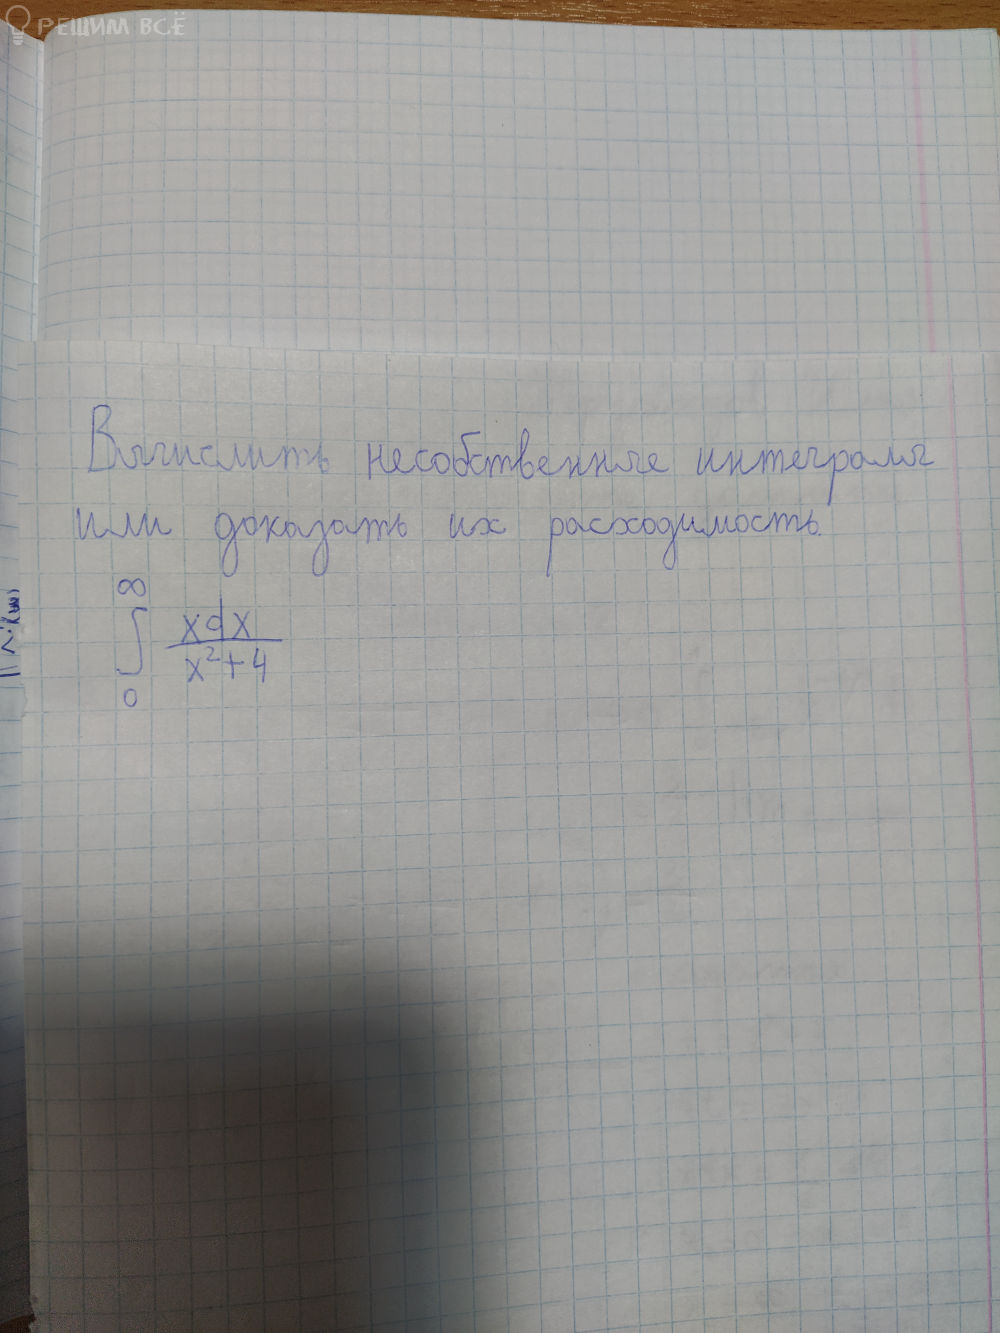 РЕШИМ ВСЁ
Вычислить несобственные интегралы
или доказать их расходимость.
∞
∫ xdx / x²+4
0